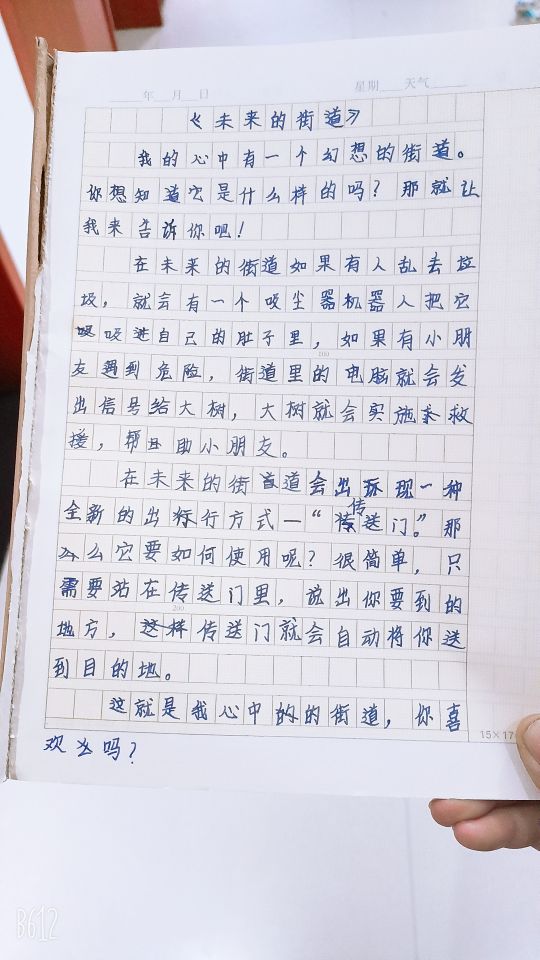 年 月 日 星期 天气
《未来的街道》
我的心中有一个幻想的街道。
你想知道它是什么样的吗？那就让
我来告诉你吧！
在未来的街道如果有人乱丢垃
圾，就会有一个吸尘器机器人把它
吸进自己的肚子里，如果有小朋
100
友遇到危险，街道里的电脑就会发
出信号给大树，大树就会实施救
援，帮助小朋友。
在未来的街道会出现一种
全新的出行方式—“传送门”。那
么它要如何使用呢？很简单，只
需要站在传送门里，说出你要到的
200
地方，传送门就会自动将你送
到目的地。
这就是我心中的街道，你喜
15×17
欢吗？
B612